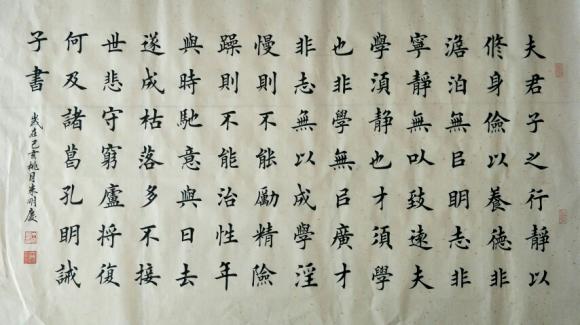 夫君子之行靜以
脩身儉以養德非
澹泊無㠯明志非
寧靜無㕥致遠夫
學須靜也才須學
也非學無㠯廣才
非志無以成學淫
慢則不能勵精險
躁則不能治性年
與時馳意與日去
遂成枯落多不接
世悲守窮廬將復
何及諸葛孔明誡
子書
歲在己亥桃月朱明慶